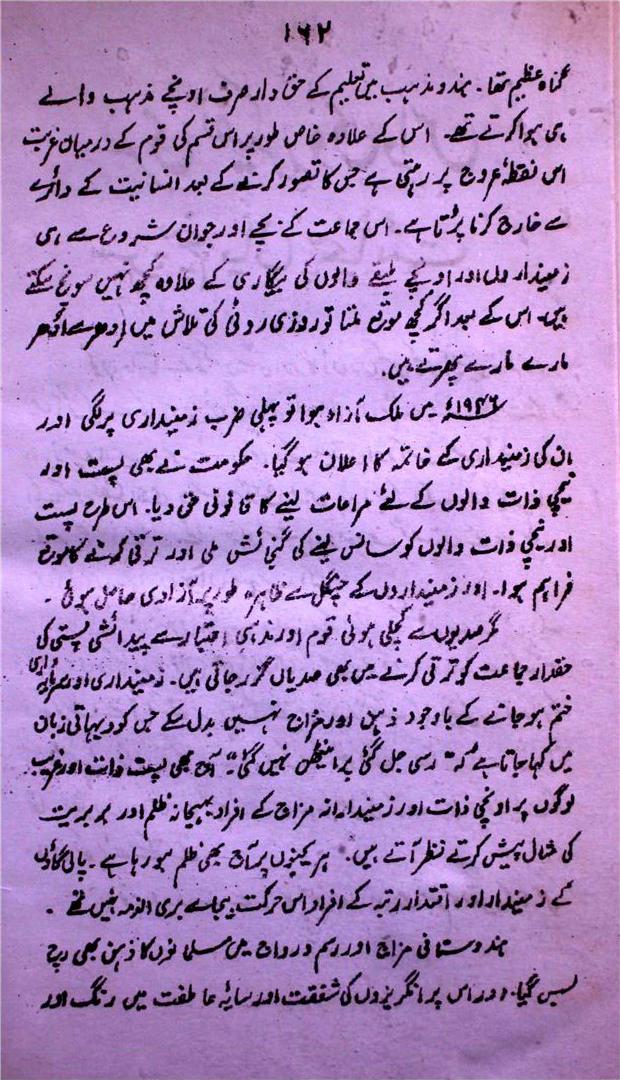 ۱۶۲
گناہ عظیم تھا۔ ہندو مذہب میں تعلیم کے حق دار صرف اونچے مذہب والے
ہی ہوا کرتے تھے۔ اس کے علاوہ خاص طور پر اس قسم کی قوم کے درمیان غربت
اس نقطۂ عروج پر رہتی ہے جس کا تصور کرنے کے بعد انسانیت کے دائرے
سے خارج کرنا پڑتا ہے۔ اس جماعت کے بچے اور جوان شروع سے ہی
زمینداروں اور اونچے طبقے والوں کی بیگاری کے علاوہ کچھ نہیں سوچ سکتے
ہیں۔ اس کے بعد اگر کچھ موقع ملتا تو روزی روٹی کی تلاش میں اِدھر سے اُدھر
مارے مارے پھرتے ہیں۔
۱۹۴۶ء میں ملک آزاد ہوا تو پہلی ضرب زمینداری پر لگی اور
ان کی زمینداری کے خاتمہ کا اعلان ہو گیا۔ حکومت نے بھی پست اور
نیچی ذات والوں کے لئے مراعات لینے کا قانونی حق دیا۔ اس طرح پست
اور نیچی ذات والوں کو سانس لینے کی گنجائش ملی اور ترقی کرنے کا موقع
فراہم ہوا۔ اور زمینداروں کے چنگل سے ظاہرہ طور پر آزادی حاصل ہوئی۔
مگر صدیوں سے کچلی ہوئی قوم اور مذہبی اعتبار سے پیدائشی پستی کی
حقدار جماعت کو ترقی کرنے میں بھی صدیاں گزر جاتی ہیں۔ زمینداری اور سرمایہ داری
ختم ہو جانے کے باوجود ذہن اور مزاج نہیں بدل سکے جس کو دیہاتی زبان
میں کہا جاتا ہے کہ "رسی جل گئی پر اینٹھن نہیں گئی"۔ آج بھی پست ذات اور غریب
لوگوں پر اونچی ذات اور زمیندارانہ مزاج کے افراد بہیمانہ ظلم اور بربریت
کی مثال پیش کرتے نظر آتے ہیں۔ ہریجنوں پر آج بھی ظلم ہو رہا ہے۔ پالی گاؤں
کے زمیندار اور اقتدار رتبہ کے افراد اس حرکت بیجا سے بری الذمہ نہیں تھے۔
ہندوستانی مزاج اور رسم و رواج میں مسلمانوں کا ذہن بھی رچ
بس گیا۔ اور اس پر انگریزوں کی شفقت اور سایۂ عاطفت میں رنگ اور